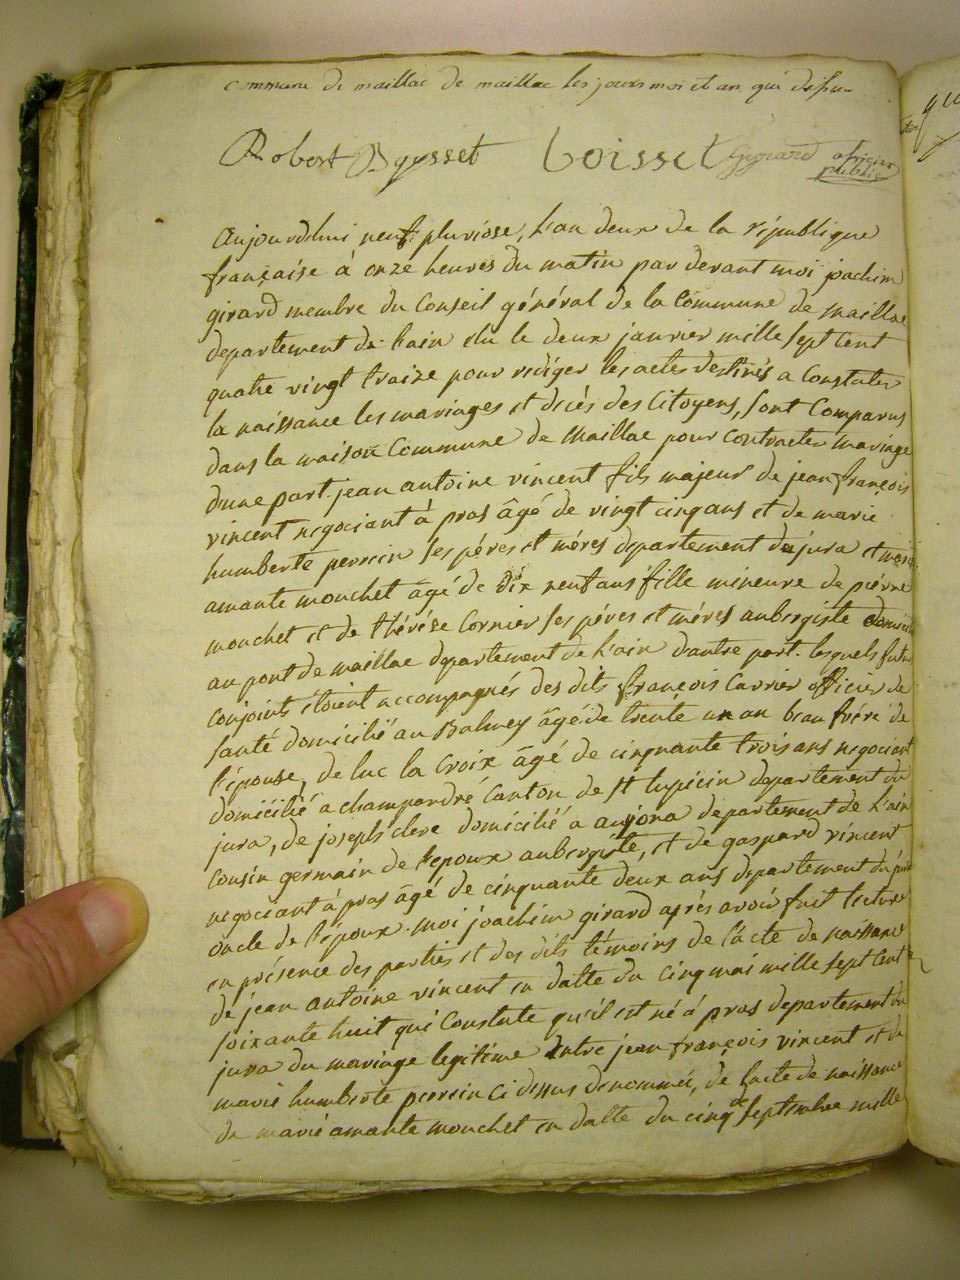 commune de maillac de maillac les jours moi et an que dessu-
Robert Bysset Goisset Girard officier
public
Aujourdhui neuf pluviose, l'an deux de la république
française à onze heures du matin par devant moi joachim
girard membre du Conseil général de la Commune de Maillac
departement de l'ain élu le deux janvier mille sept cent
quatre vingt traize pour rédiger les actes destinés a Constater
la naissance les mariages et décès des Citoyens, sont Comparus
dans la maison Commune de Maillac pour contracter mariage
dune part. jean antoine vincent fils majeur de jean françois
vincent negociant à pras âgé de vingt cinq ans et de marie
humberte perrein ses péres et méres departement du jura et marie
amante mouchet âgé de dix neuf ans fille mineure de piérre
mouchet et de thérése Cornier ses péres et méres aubergiste domicilié
au pont de maillac departement de l'ain dautre part. lesquels futur
conjoints étoient accompagnés des dits françois Carrier officier de
santé domicilié au Balmey âgé de trente un an beau frére de
l'épouse, de luc la Croix âgé de cinquante trois ans négociant
domicilié a champardré Canton de st lupicin departement du
jura, de joseph clerc domicilié a anjona departement de l'ain
Cousin germain de l'epoux aubergiste, et de gaspard vincent
négociant à pras âgé de cinquante deux ans departement du jura
oncle de l'époux. moi joachim girard aprés avoir fait lecture
en présence des parties et des dits témoins de l'acte de naissance
de jean antoine vincent en datte du cinq mai mille sept cent
soixante huit qui Constate qu'il est né à pras departement du
jura du mariage legitime entre jean françois vincent et de
marie humberte perrein ci dessus denommée, de l'acte de naissance
de marie amante mouchet en datte du cinq de septembre mille